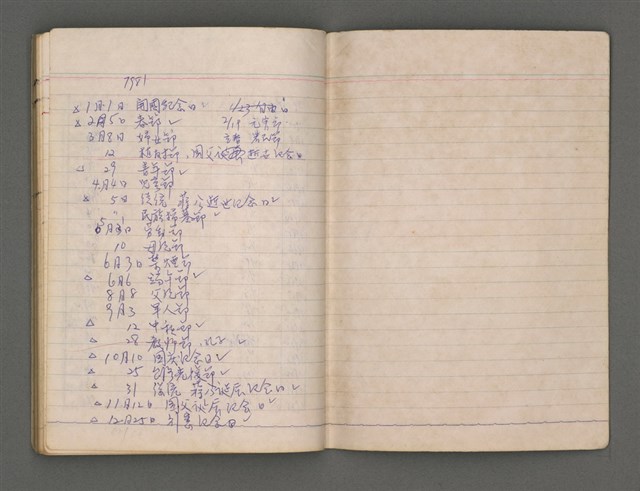 1981
× 1月1日 開國紀念日 ✓ 1/23 自由日
× 2月5日 春節 ✓ 2/19 元宵節
3月8日 婦女節
12 植樹節、國父逝世紀念日
△ 29 青年節 ✓
4月4日 兒童節
× 5日 先總統 蔣公逝世紀念日 ✓
" 民族掃墓節 ✓
5月1日 勞動節
10 母親節
6月3日 禁煙節
△ 6月6 端午節 ✓
8月8 父親節
9月3 軍人節
△ 12 中秋節 ✓
△ 28 教師節、孔子 ✓
△ 10月10 國庆紀念日 ✓
△ 25 台灣光復節 ✓
△ 31 先總統 蔣公誕辰紀念日 ✓
△ 11月12日 國父誕辰紀念日 ✓
△ 12月25日 行憲紀念日 ✓